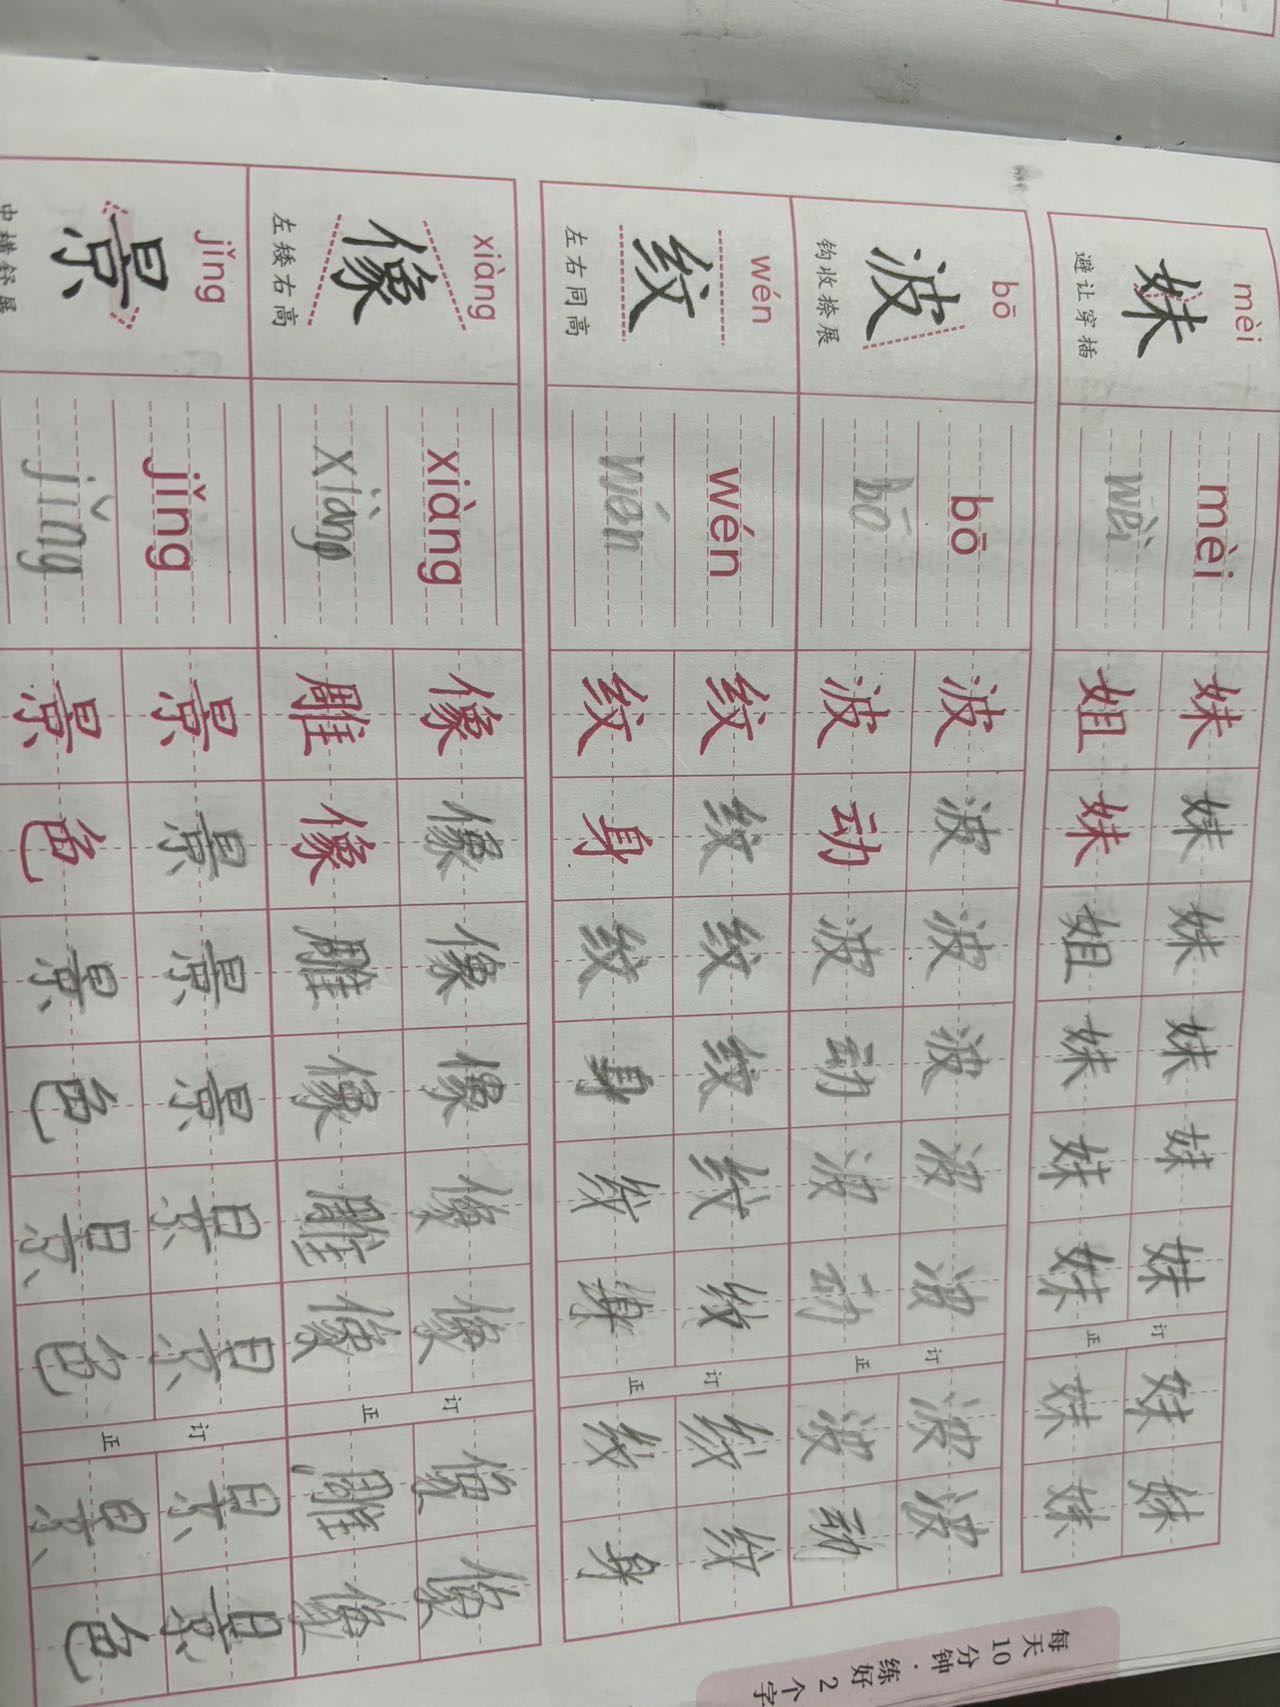 mèi
妹
避让穿插
mèi 妹 妹 妹 妹 妹 妹 订 妹 妹
wèi 姐 妹 姐 妹 妹 妹 正 妹 妹
bō
波
钩收捺展
bō 波 波 波 波 波 波 订 波 波
bō 波 动 波 动 波 动 正 波 动
wén
纹
左右同高
wén 纹 纹 纹 纹 纹 纹 订 纹 纹
wén 纹 身 纹 身 纹 正 纹 身
xiàng
像
左矮右高
xiàng 像 像 像 像 像 像 订 像 像
xiàng 雕 像 雕 像 雕 像 正 雕 像
jǐng
景
中横舒展
jǐng 景 景 景 景 景 景 订 景 景
jǐng 景 色 景 色 景 色 正 景 色
每天10分钟·练好2个字